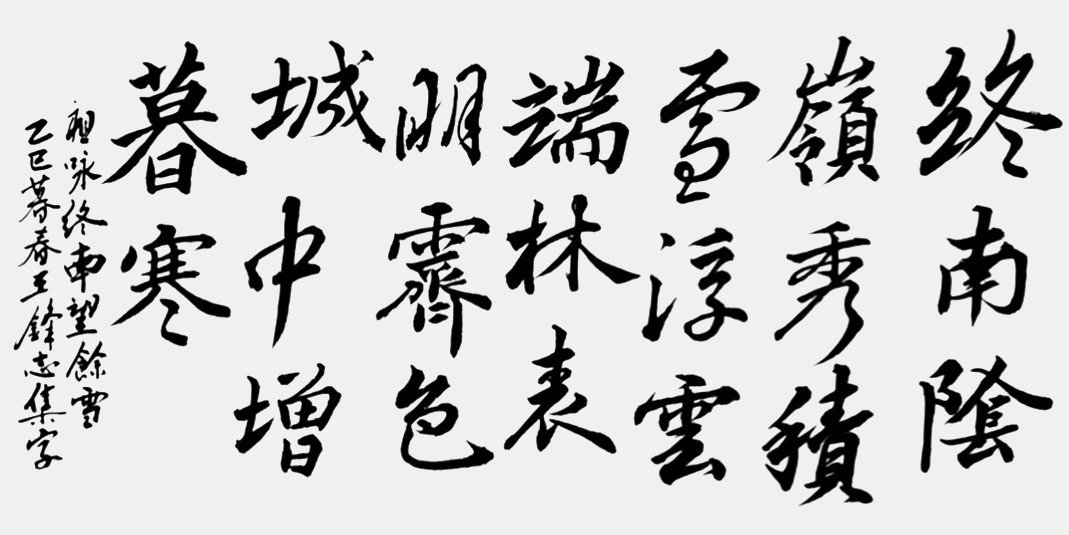 終南陰
嶺秀積
雪浮雲
端林表
明霽色
城中增
暮寒
祖咏終南望餘雪
乙巳暮春王鋒志集字